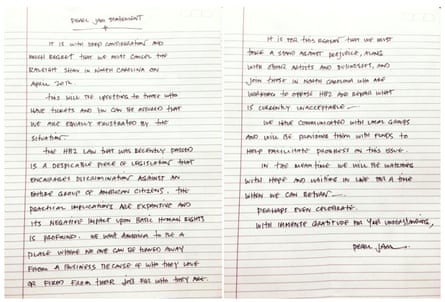 PEARL JAM STATEMENT
IT IS WITH DEEP CONSIDERATION AND
MUCH REGRET THAT WE MUST CANCEL THE
RALEIGH SHOW IN NORTH CAROLINA ON
APRIL 20TH.
THIS WILL BE UPSETTING TO THOSE WHO
HAVE TICKETS AND YOU CAN BE ASSURED THAT
WE ARE EQUALLY FRUSTRATED BY THE
SITUATION.
THE HB2 LAW THAT WAS RECENTLY PASSED
IS A DESPICABLE PIECE OF LEGISLATION THAT
ENCOURAGES DISCRIMINATION AGAINST AN
ENTIRE GROUP OF AMERICAN CITIZENS. THE
PRACTICAL IMPLICATIONS ARE EXPANSIVE AND
ITS NEGATIVE IMPACT UPON BASIC HUMAN RIGHTS
IS PROFOUND. WE WANT AMERICA TO BE A
PLACE WHERE NO ONE CAN BE TURNED AWAY
FROM A BUSINESS BECAUSE OF WHO THEY LOVE
OR FIRED FROM THEIR JOB FOR WHO THEY ARE.
IT IS FOR THIS REASON THAT WE MUST
TAKE A STAND AGAINST PREJUDICE, ALONG
WITH OTHER ARTISTS AND BUSINESSES, AND
JOIN THOSE IN NORTH CAROLINA WHO ARE
WORKING TO OPPOSE HB2 AND REPAIR WHAT
IS CURRENTLY UNACCEPTABLE—
WE HAVE COMMUNICATED WITH LOCAL GROUPS
AND WILL BE PROVIDING THEM WITH FUNDS TO
HELP FACILITATE PROGRESS ON THIS ISSUE.
IN THE MEANTIME WE WILL BE WATCHING
WITH HOPE AND WAITING IN LINE FOR A TIME
WHEN WE CAN RETURN—
PERHAPS EVEN CELEBRATE.
WITH IMMENSE GRATITUDE FOR YOUR UNDERSTANDING,
PEARL JAM